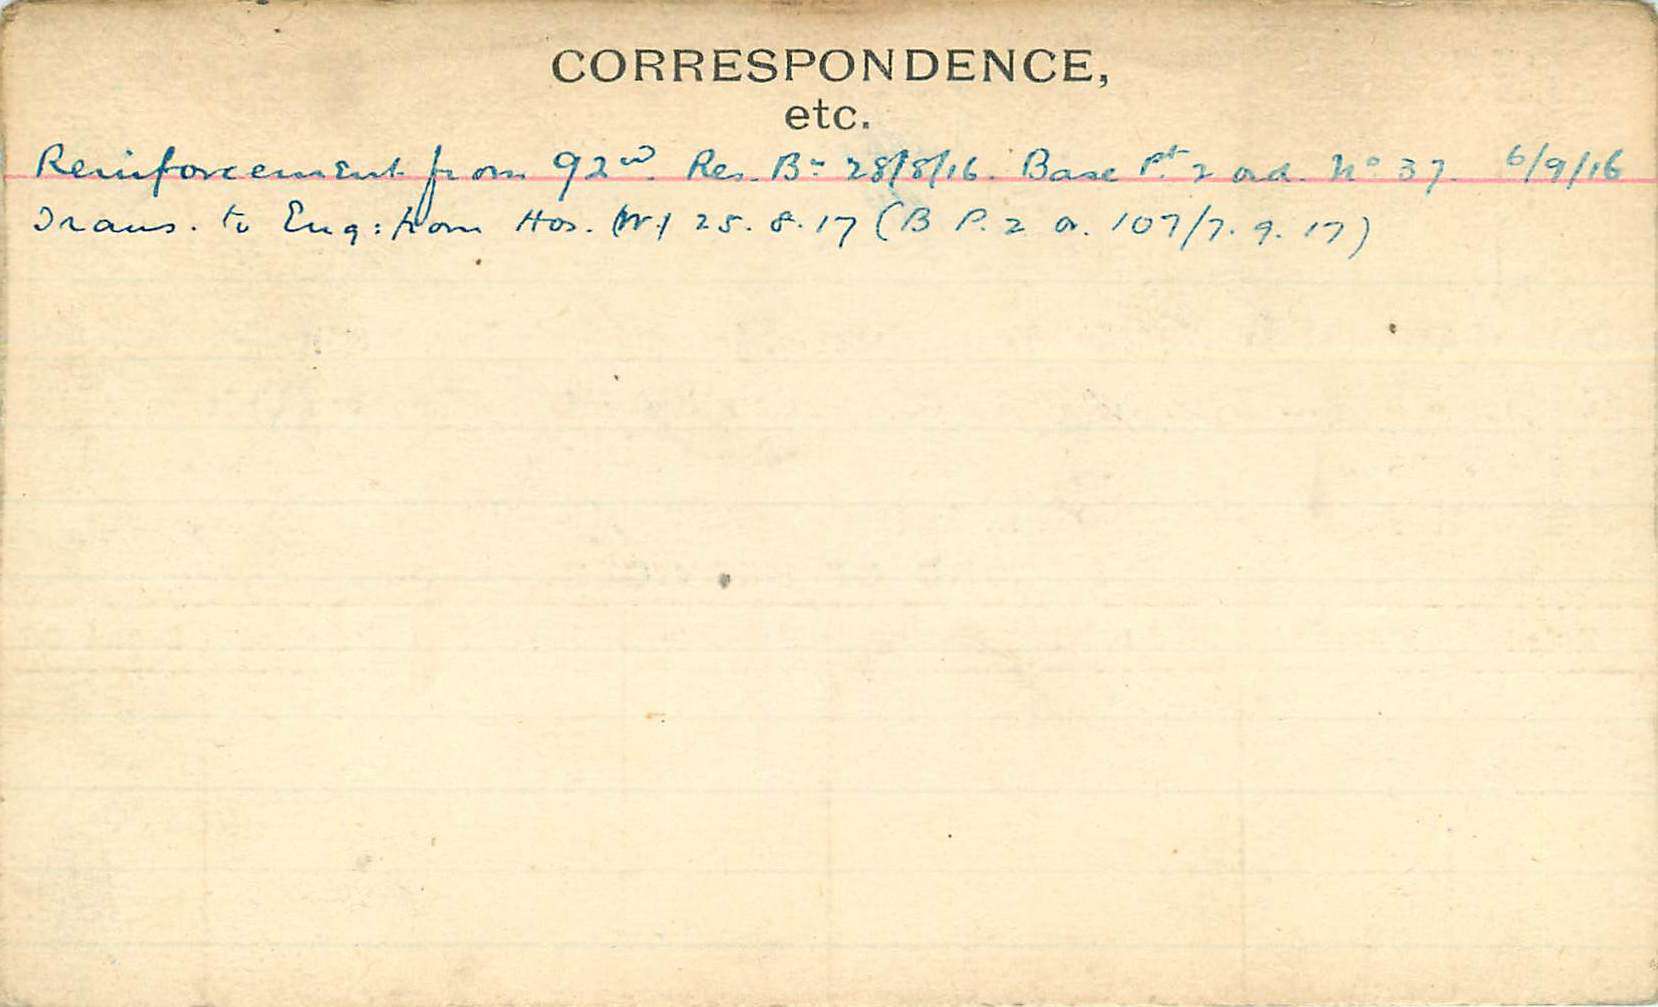 CORRESPONDENCE,
etc.
Reinforcement from 92nd. Res. Bn 28/8/16. Base Pt. 2 ord. No 37. 6/9/16
Trans. to Eng: from Hos. (W) 25. 8. 17 (B P. 2 o. 107/7. 9. 17)